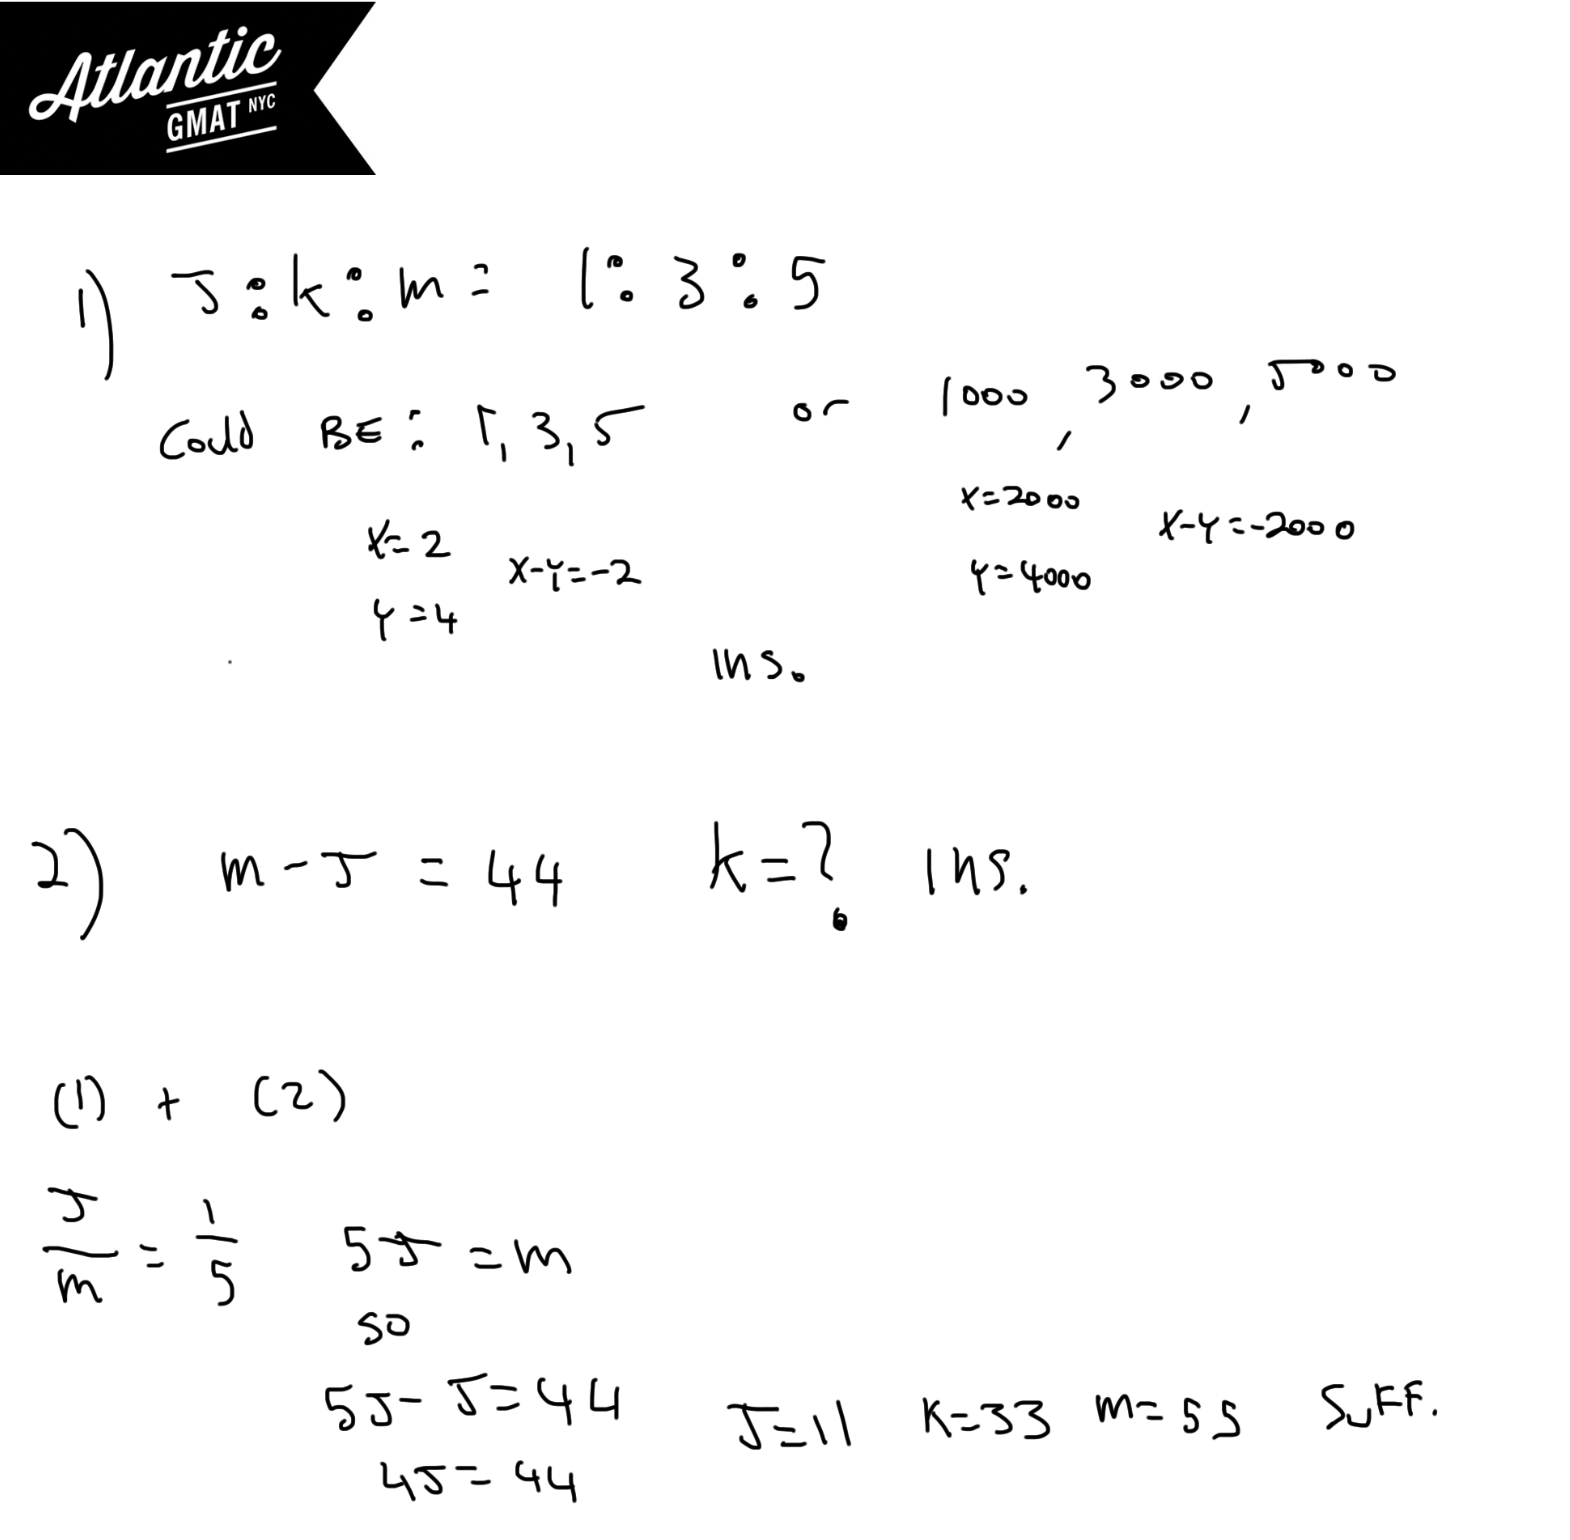 Atlantic
GMAT NYC
1) J:k:m = 1:3:5
Could BE: 1, 3, 5 or 1000, 3000, 5000
x=2 x-y=-2 x=2000 x-y=-2000
y=4 y=4000
Ins.
2) m-J = 44 k=? Ins.
(1) + (2)
J/m = 1/5 5J=m
so
5J-J=44 J=11 K=33 m=55 SuFF.
4J=44